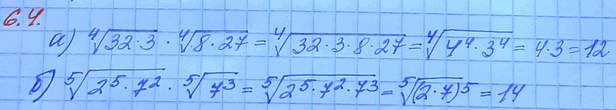 6.4.
а) ⁴√(32·3) · ⁴√(8·27) = ⁴√(32·3·8·27) = ⁴√(4⁴·3⁴) = 4·3 = 12
б) ⁵√(2⁵·7²) · ⁵√(7³) = ⁵√(2⁵·7²·7³) = ⁵√((2·7)⁵) = 14